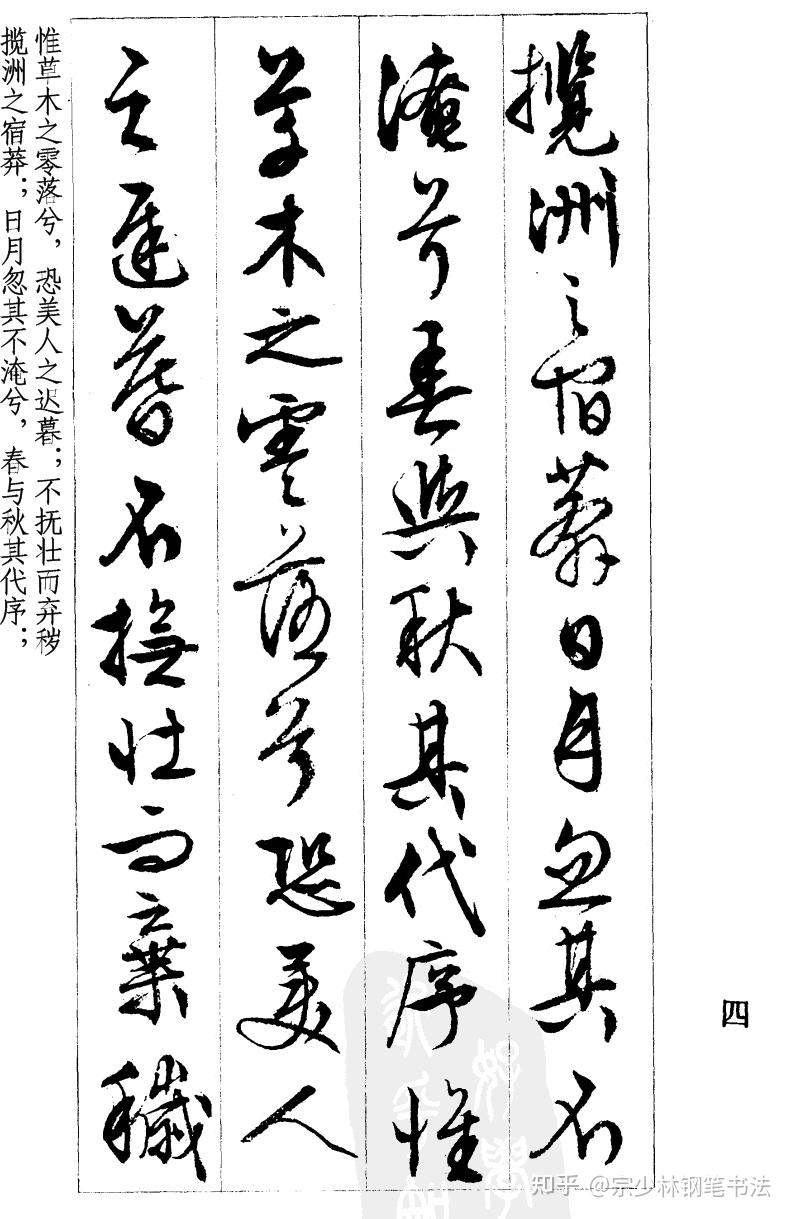 攬洲之宿莽日月忽其不
淹兮春與秋其代序惟
草木之零落兮恐美人
之遲暮不撫壯而棄穢
揽洲之宿莽；日月忽其不淹兮，春与秋其代序；
惟草木之零落兮，恐美人之迟暮；不抚壮而弃秽
四
知乎 @宗少林钢笔书法